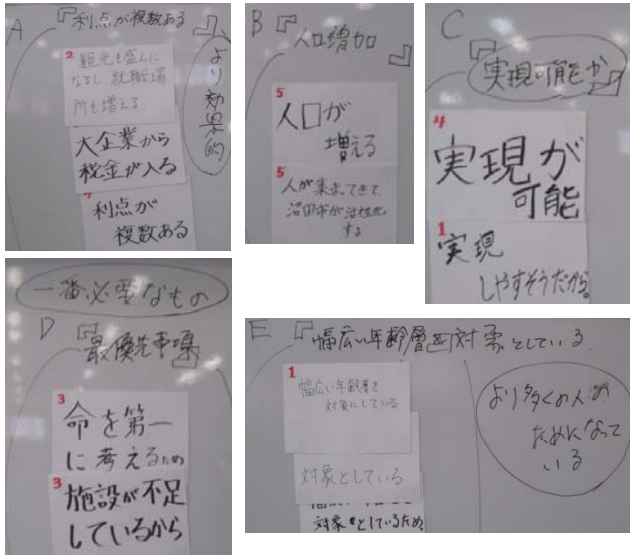 A
『利点が複数ある
より効果的
2
観光も盛んに
なるし、就職場
所も増える。
大企業から
税金が入る
利点が
複数ある
B
『人口増加』
5
人口が
増える
5
人が集まってきて、
沼田市が活性化
する
C
『実現可能か』
4
実現が
可能
1
実現
しやすそうだから。
一番必要なもの
D
『最優先事項』
3
命を第一
に考えるため
3
施設が不足
しているから
E
『幅広い年齢層を対象としている』
1
幅広い年齢層を
対象にしている
対象としている
対象としているため。
より多くの人の
ためになって
いる